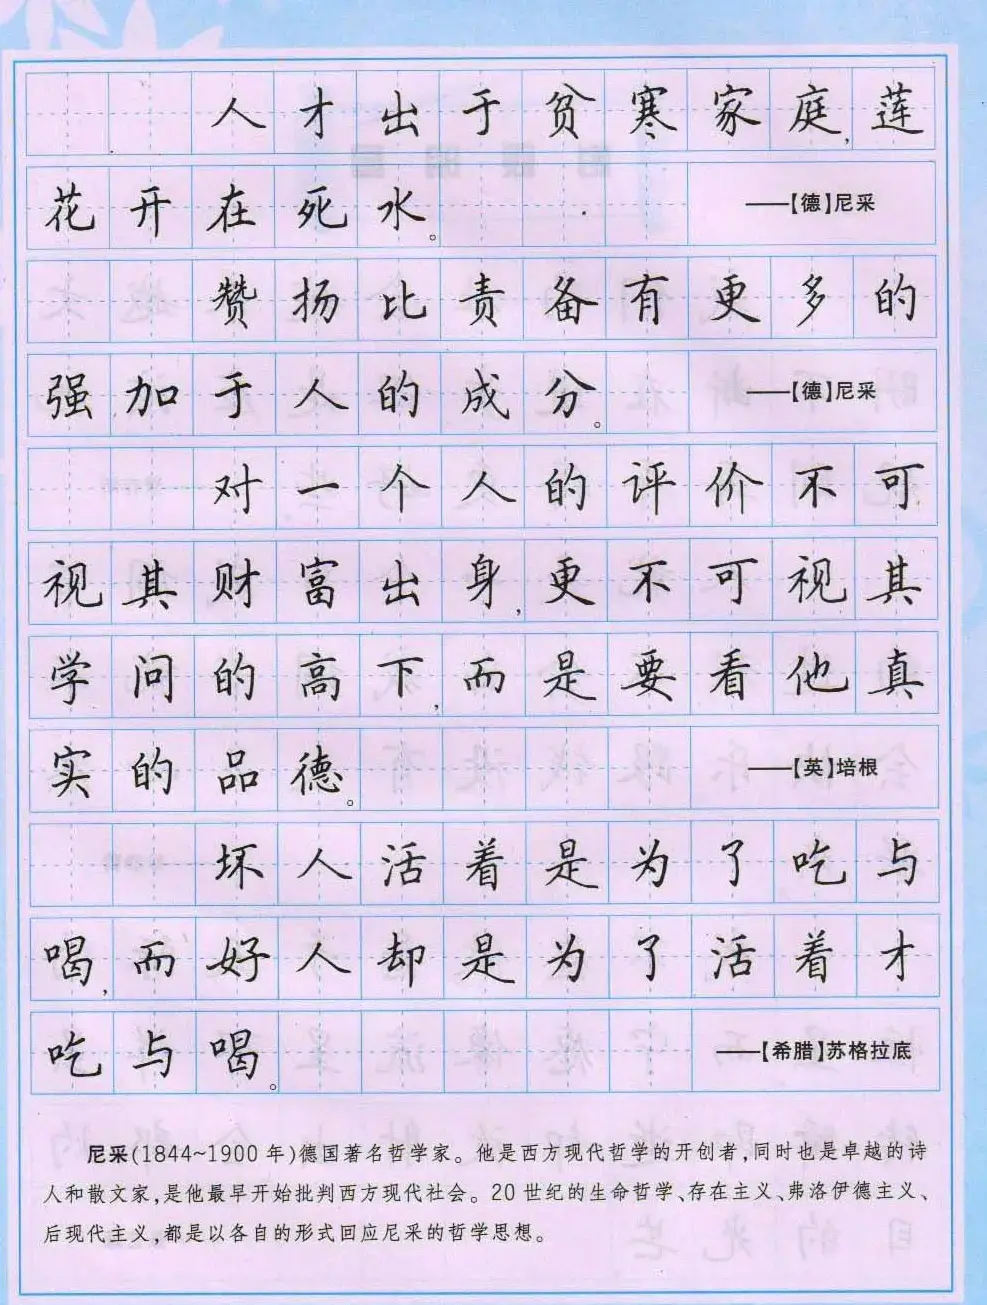 人才出于贫寒家庭,莲
花开在死水。 ——【德】尼采
赞扬比责备有更多的
强加于人的成分。 ——【德】尼采
对一个人的评价不可
视其财富出身,更不可视其
学问的高下,而是要看他真
实的品德。 ——【英】培根
坏人活着是为了吃与
喝,而好人却是为了活着才
吃与喝。 ——【希腊】苏格拉底
尼采(1844~1900年)德国著名哲学家。他是西方现代哲学的开创者,同时也是卓越的诗
人和散文家,是他最早开始批判西方现代社会。20世纪的生命哲学、存在主义、弗洛伊德主义、
后现代主义,都是以各自的形式回应尼采的哲学思想。